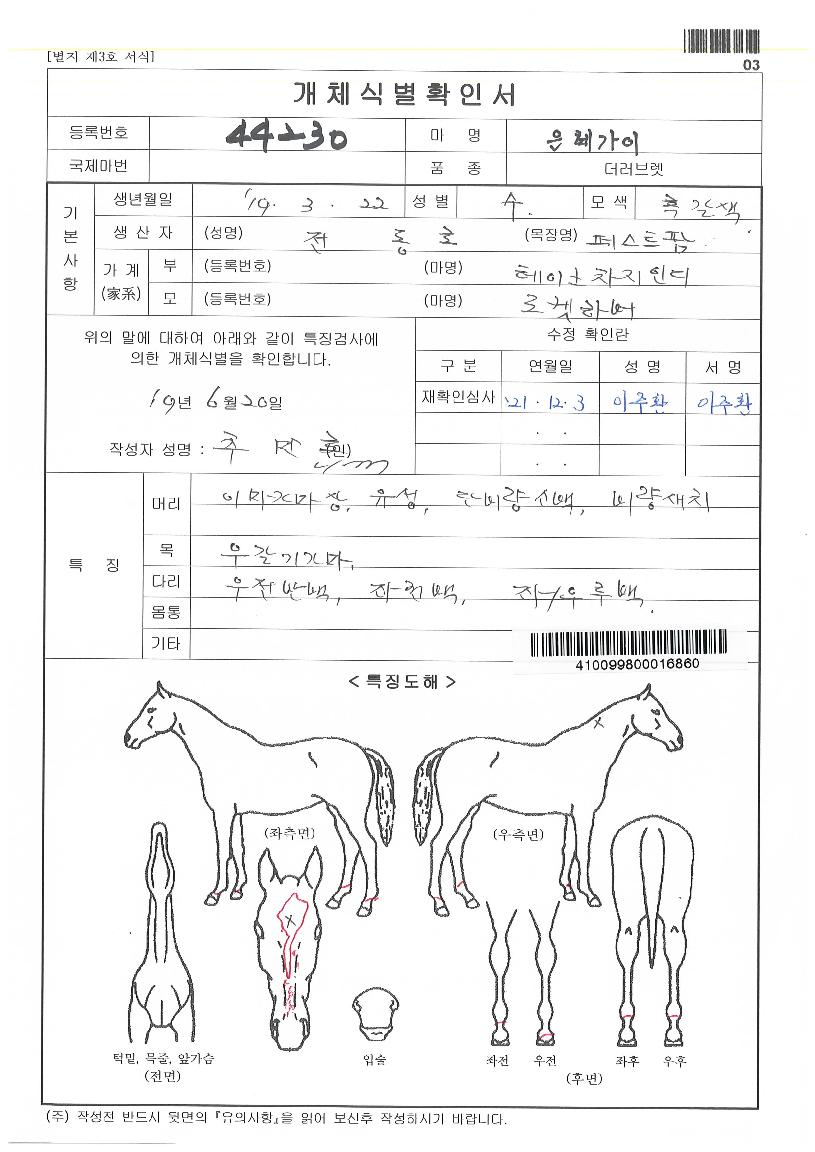 [별지 제3호 서식]
03
개체식별확인서
등록번호 44230 마 명 은혜가이
국제마번 품 종 더러브렛
기본사항
생년월일 '19. 3. 22 성별 수. 모색 흑갈색
생 산 자 (성명) 전 동 호 (목장명) 페스트팜
가계(家系) 부 (등록번호) (마명) 테이크차지인디
모 (등록번호) (마명) 로켓하버
위의 말에 대하여 아래와 같이 특징검사에
의한 개체식별을 확인합니다.
19년 6월 20일
작성자 성명 : (인)
수정 확인란
구 분 연월일 성 명 서 명
재확인심사 '21. 12. 3 이주환 이주환
특 징
머리 유성, 단비량신백, 비량새치
목
다리 우전반백,
몸통
기타
410099800016860
< 특징도해 >
(좌측면) (우측면)
턱밑, 목줄, 앞가슴
(전면)
입술
좌전 우전 좌후 우후
(후면)
(주) 작성전 반드시 뒷면의 『유의시항』을 읽어 보신후 작성하시기 바랍니다.